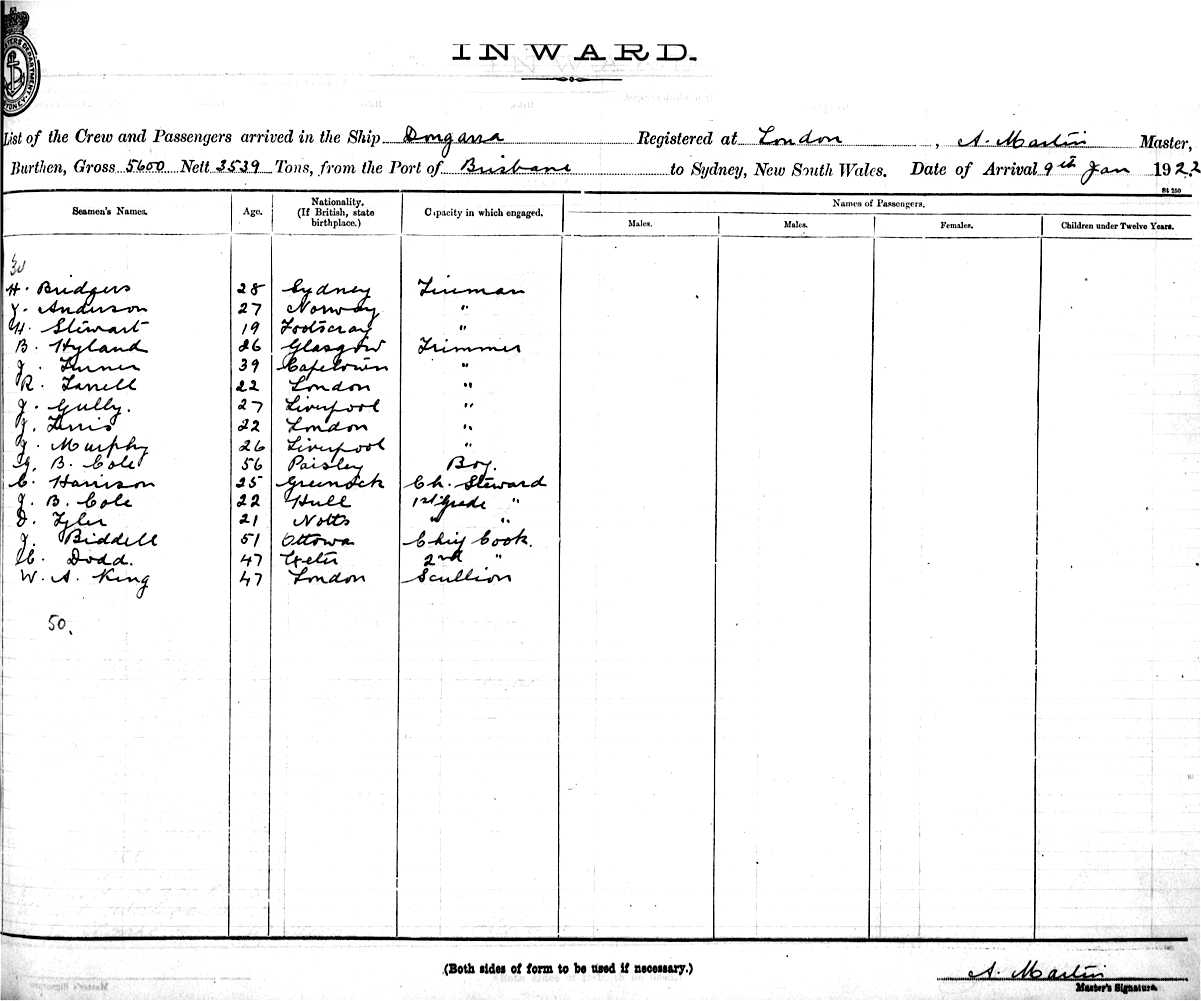 INWARD.
List of the Crew and Passengers arrived in the Ship Dongarra Registered at London , A. Martin Master,
Burthen, Gross 5600 Nett 3539 Tons, from the Port of Brisbane to Sydney, New South Wales. Date of Arrival 9th Jan 1922
St 250
Seamen's Names. Age. Nationality. (If British, state birthplace.) Capacity in which engaged. Names of Passengers.
Males. Males. Females. Children under Twelve Years.
H. Bridgers 28 Sydney Fireman
J. Anderson 27 Norway "
H. Stewart 19 Footscray "
B. Hyland 26 Glasgow Trimmer
J. Turner 39 Capetown "
R. Farrell 22 London "
J. Gully. 27 Liverpool "
J. 22 London "
J. Murphy 26 Liverpool "
G. B. Cole 56 Paisley Boy.
C. Harrison 25 Greenock Ch. Steward
J. B. Cole 22 Hull 1st Grade "
D. Tyler 21 Notts " "
J. Biddell 51 Ottowa Chief Cook.
C. Dodd. 47 Exeter 2nd "
W. A. King 47 London Scullion
50.
(Both sides of form to be used if necessary.)
A. Martin
Master's Signature.